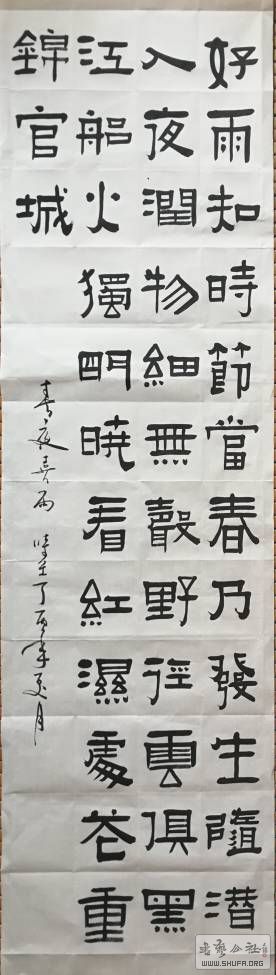 好雨知時節當春乃發生隨潛
入夜潤物細無聲野徑雲俱黑
江船火獨明曉看紅濕處花重
錦官城
春夜喜雨 丁酉年夏月
书艺公社
WWW.SHUFA.ORG